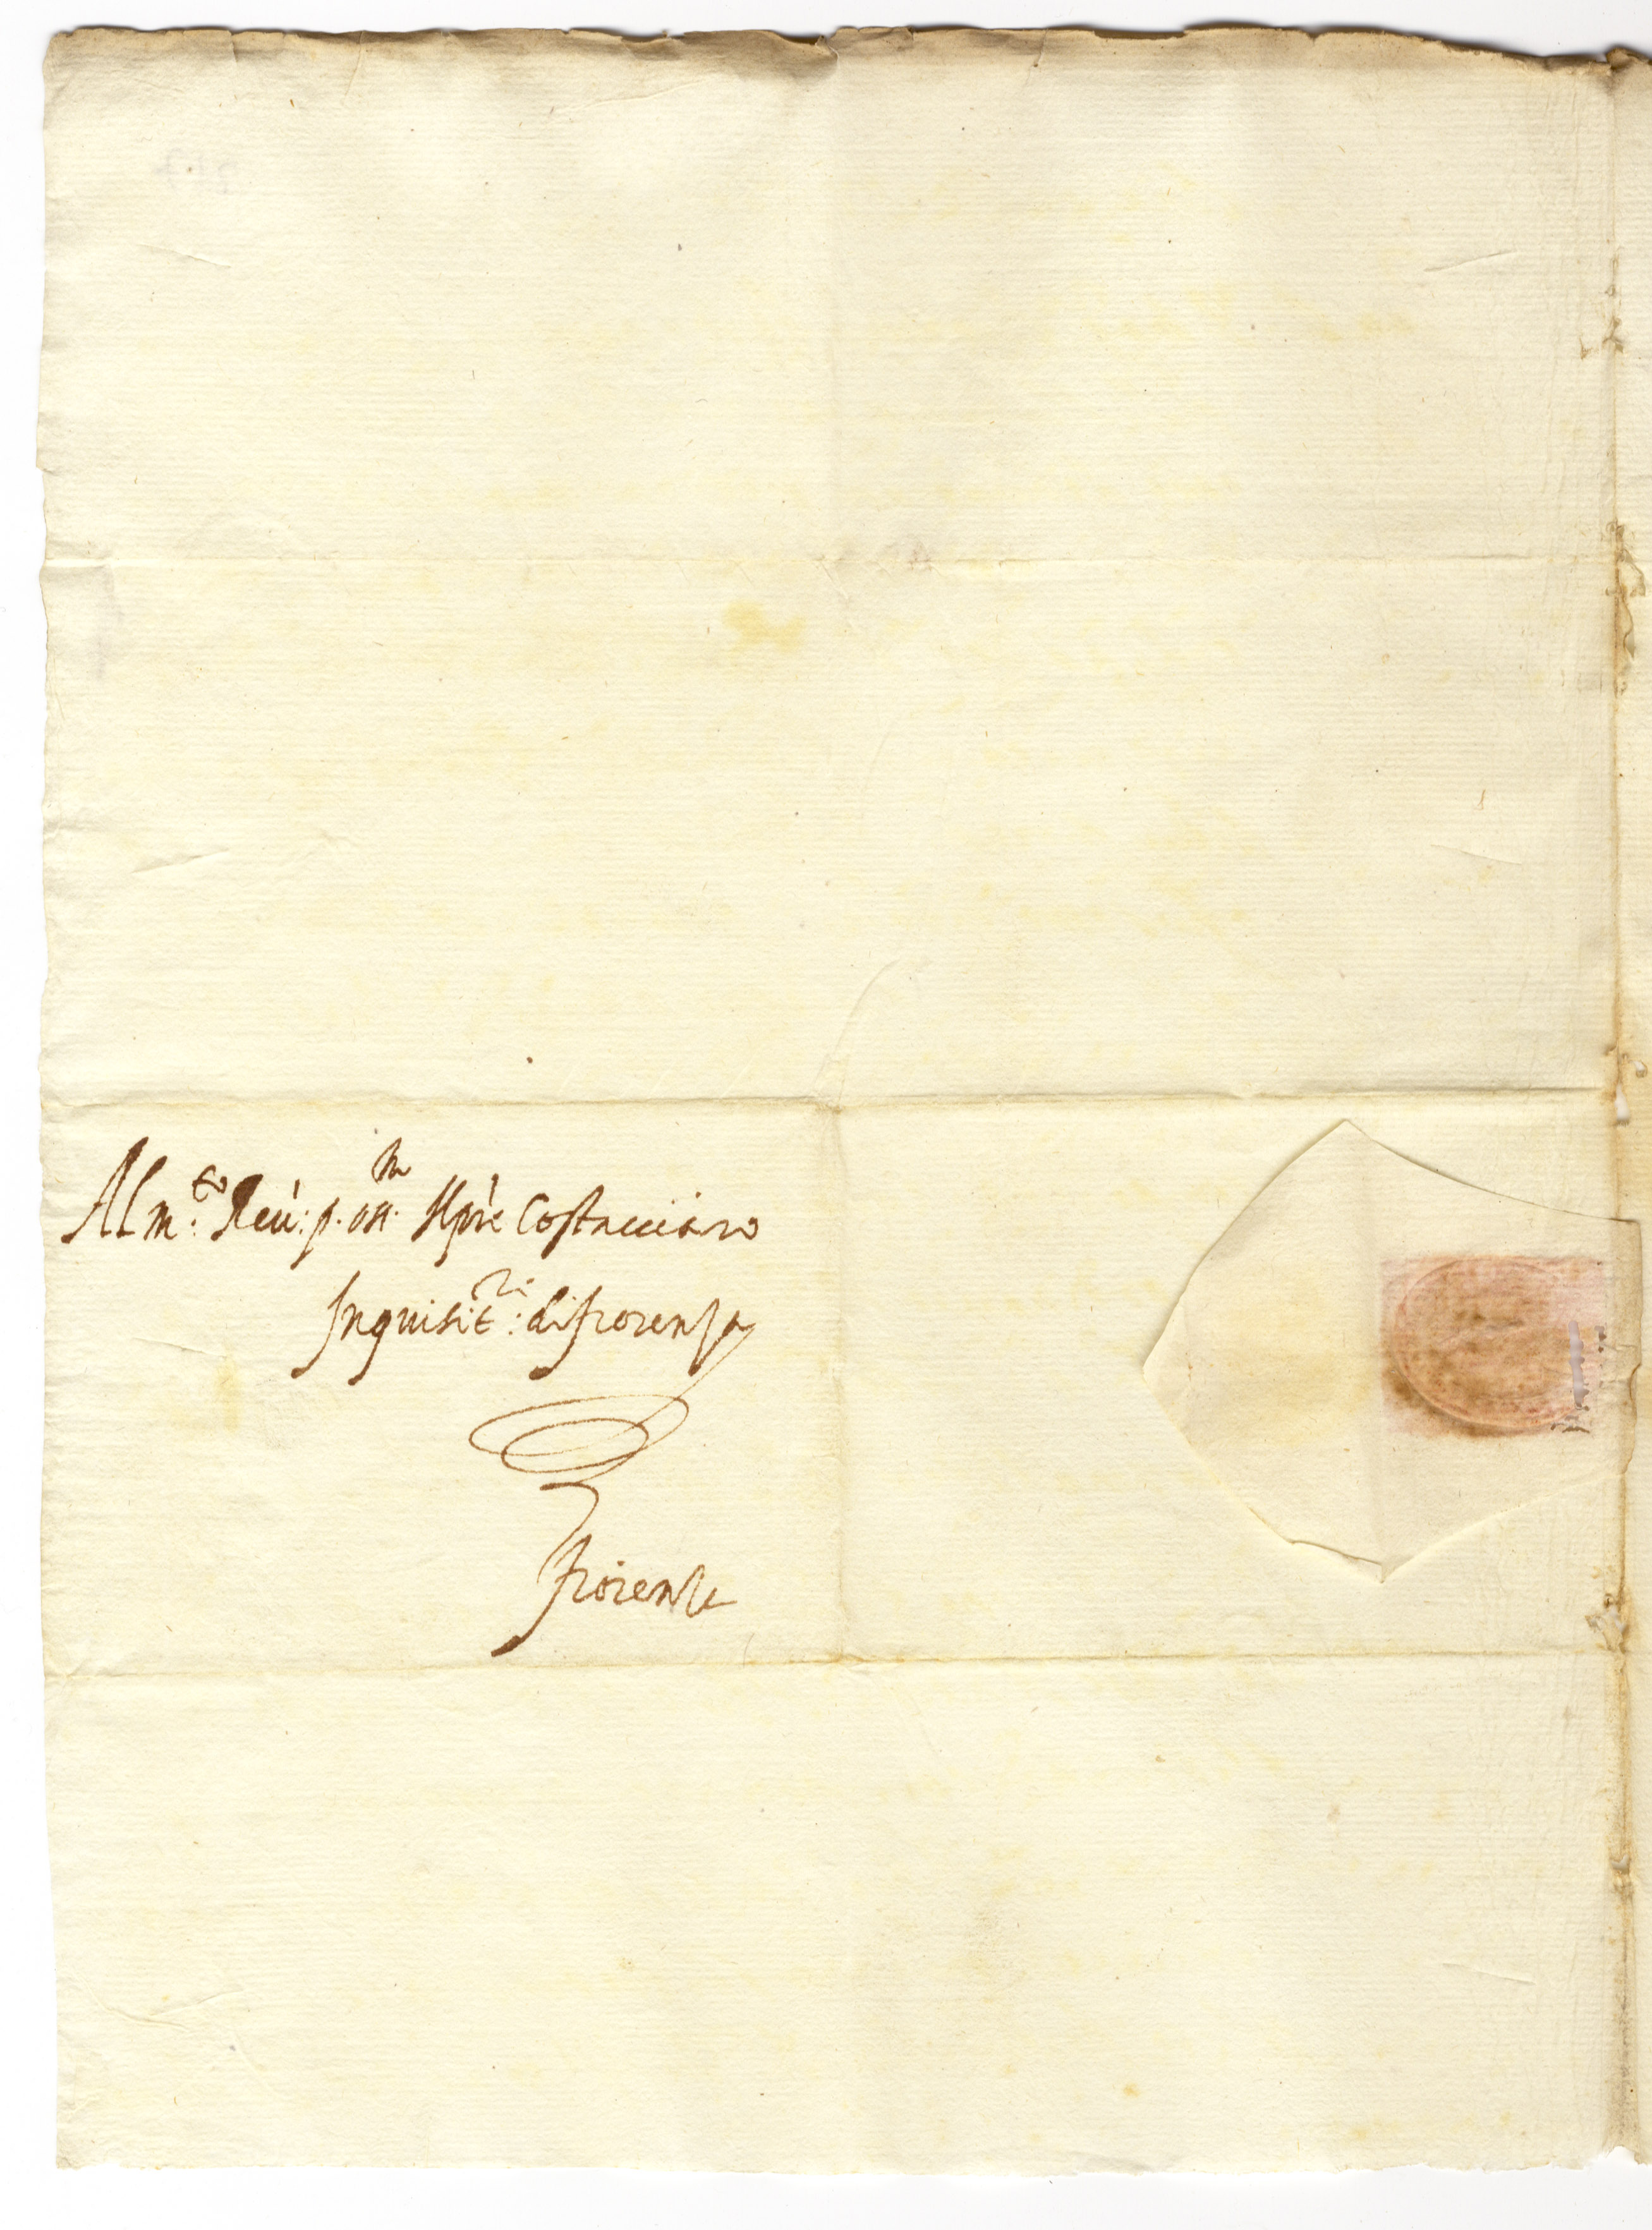 Al m:to Reu: p. oss:m il pre Costacciaro
Inquisit:re di fiorenza
fiorenza